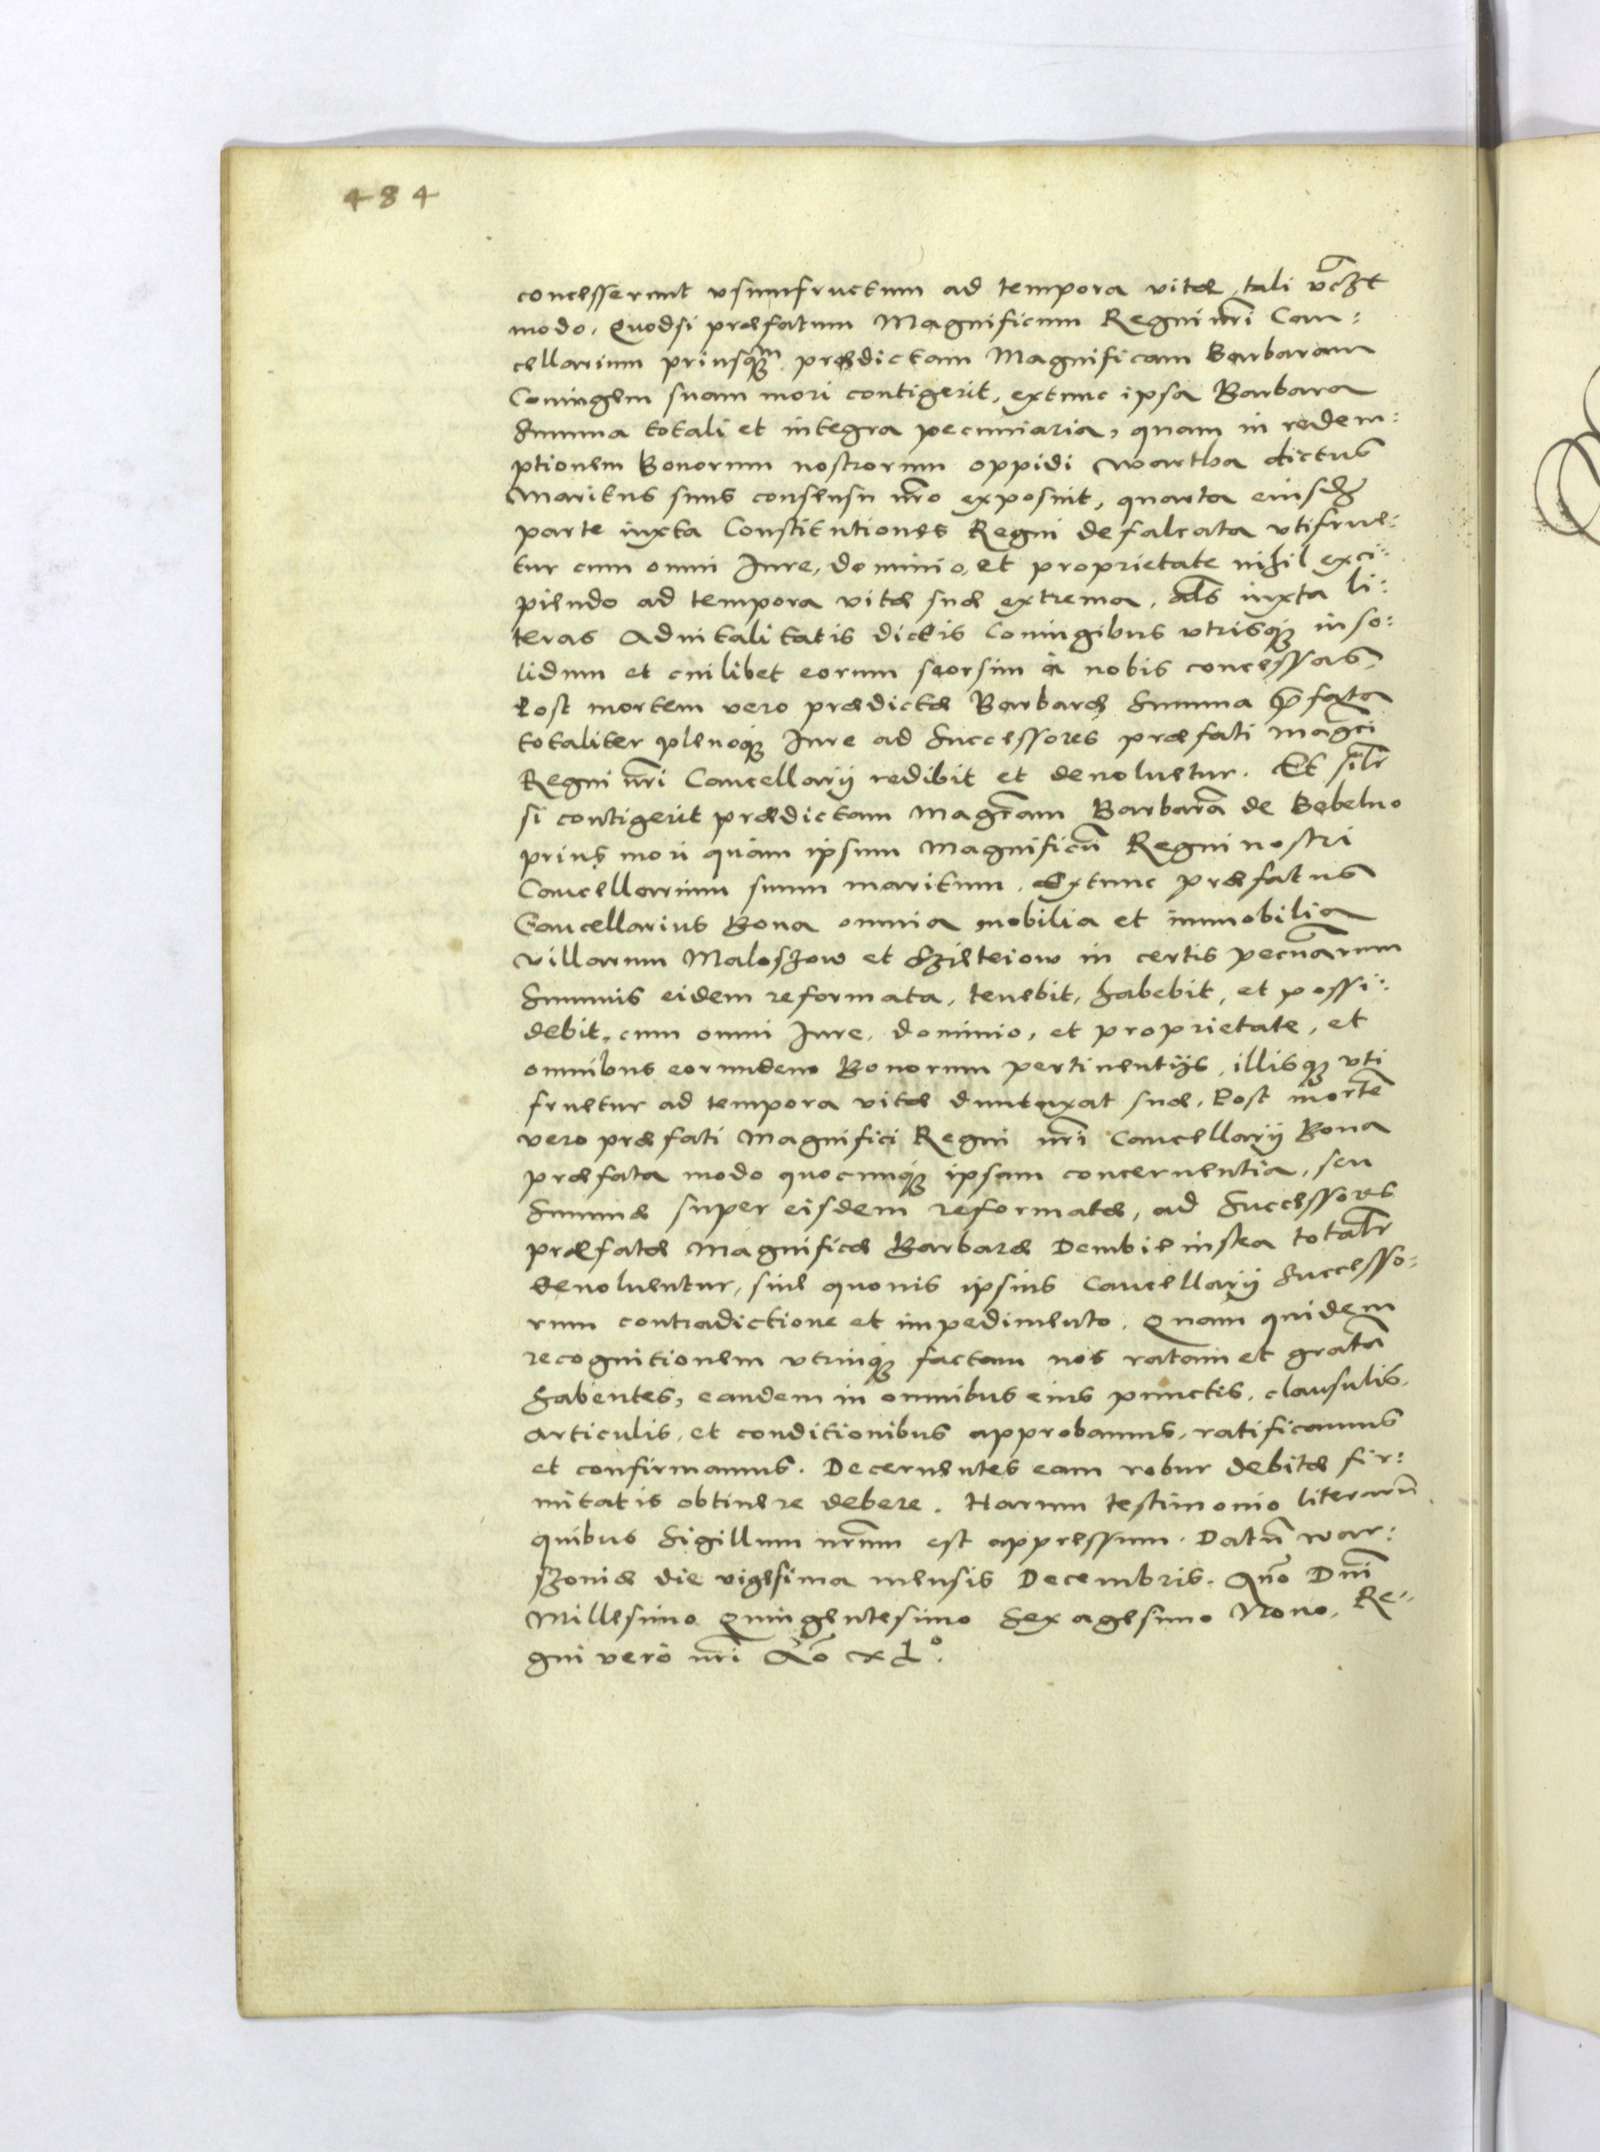 484
concesserunt vsumfructum ad tempora vitæ, tali vczt
modo. Quodsi præfatum Magnificum Regni nri Can:
cellarium priusqm prædictam Magnificam Barbaram
Coniugem suam mori contigerit, extunc ipsa Barbara
Summa totali et integra pecuniaria, quam in redem:
ptionem Bonorum nostrorum oppidi Wartha dictus
Maritus suus consensu nro exposuit, quarta eiusdē
parte iuxta Constitutiones Regni defalcata vtifrue:
tur cum omni Iure, dominio, et proprietate nihil exci:
piendo ad tempora vitæ suæ extrema, als iuxta li:
teras Aduitalitatis dictis Coniugibus vtrisq; inso:
lidum et cuilibet eorum seorsim à nobis concessas,
Post mortem vero prædictæ Barbaræ Summa pfata
totaliter plenoq; Iure ad Successores præfati magci
Regni nri Cancellarij redibit et deuoluetur. Et silr
si contigerit prædictam magcam Barbarā de Bebelno
prius mori quàm ipsum Magnificū Regni nostri
Cancellarium suum maritum. Extunc præfatus
Cancellarius Bona omnia mobilia et immobilia
villarum Maloszow et Szilteiow in certis pecuarum
Summis eidem reformata, tenebit, habebit, et possi:
debit, cum omni Iure, dominio, et proprietate, et
omnibus eorumdem Bonorum pertinentijs, illisq; vti
fruetur ad tempora vitæ duntaxat suæ. Post mortē
vero præfati Magnifici Regni nri Cancellarij Bona
præfata modo quocunq; ipsam concernentia, seu
Summæ super eisdem reformatæ, ad Successores
præfatæ Magnificæ Barbaræ Dembieinska totalr
deuoluentur, siue quouis ipsius Cancellarij Successo:
rum contradictione et impedimento. Quam quidem
recognitionem vtrinq; factam nos ratam et gratā
habentes, eandem in omnibus eius punctis, clausulis,
articulis, et conditionibus approbamus, ratificamus
et confirmamus. Decernentes eam robur debitæ fir:
mitatis obtinere debere. Harum testimonio literarū
quibus Sigillum nrum est appressum. Datū War:
szouiæ die vigesima mensis Decembris. Ano Dni
Millesimo Quingentesimo Sexagesimo Nono. Re:
gni verò nri Ao xlo.